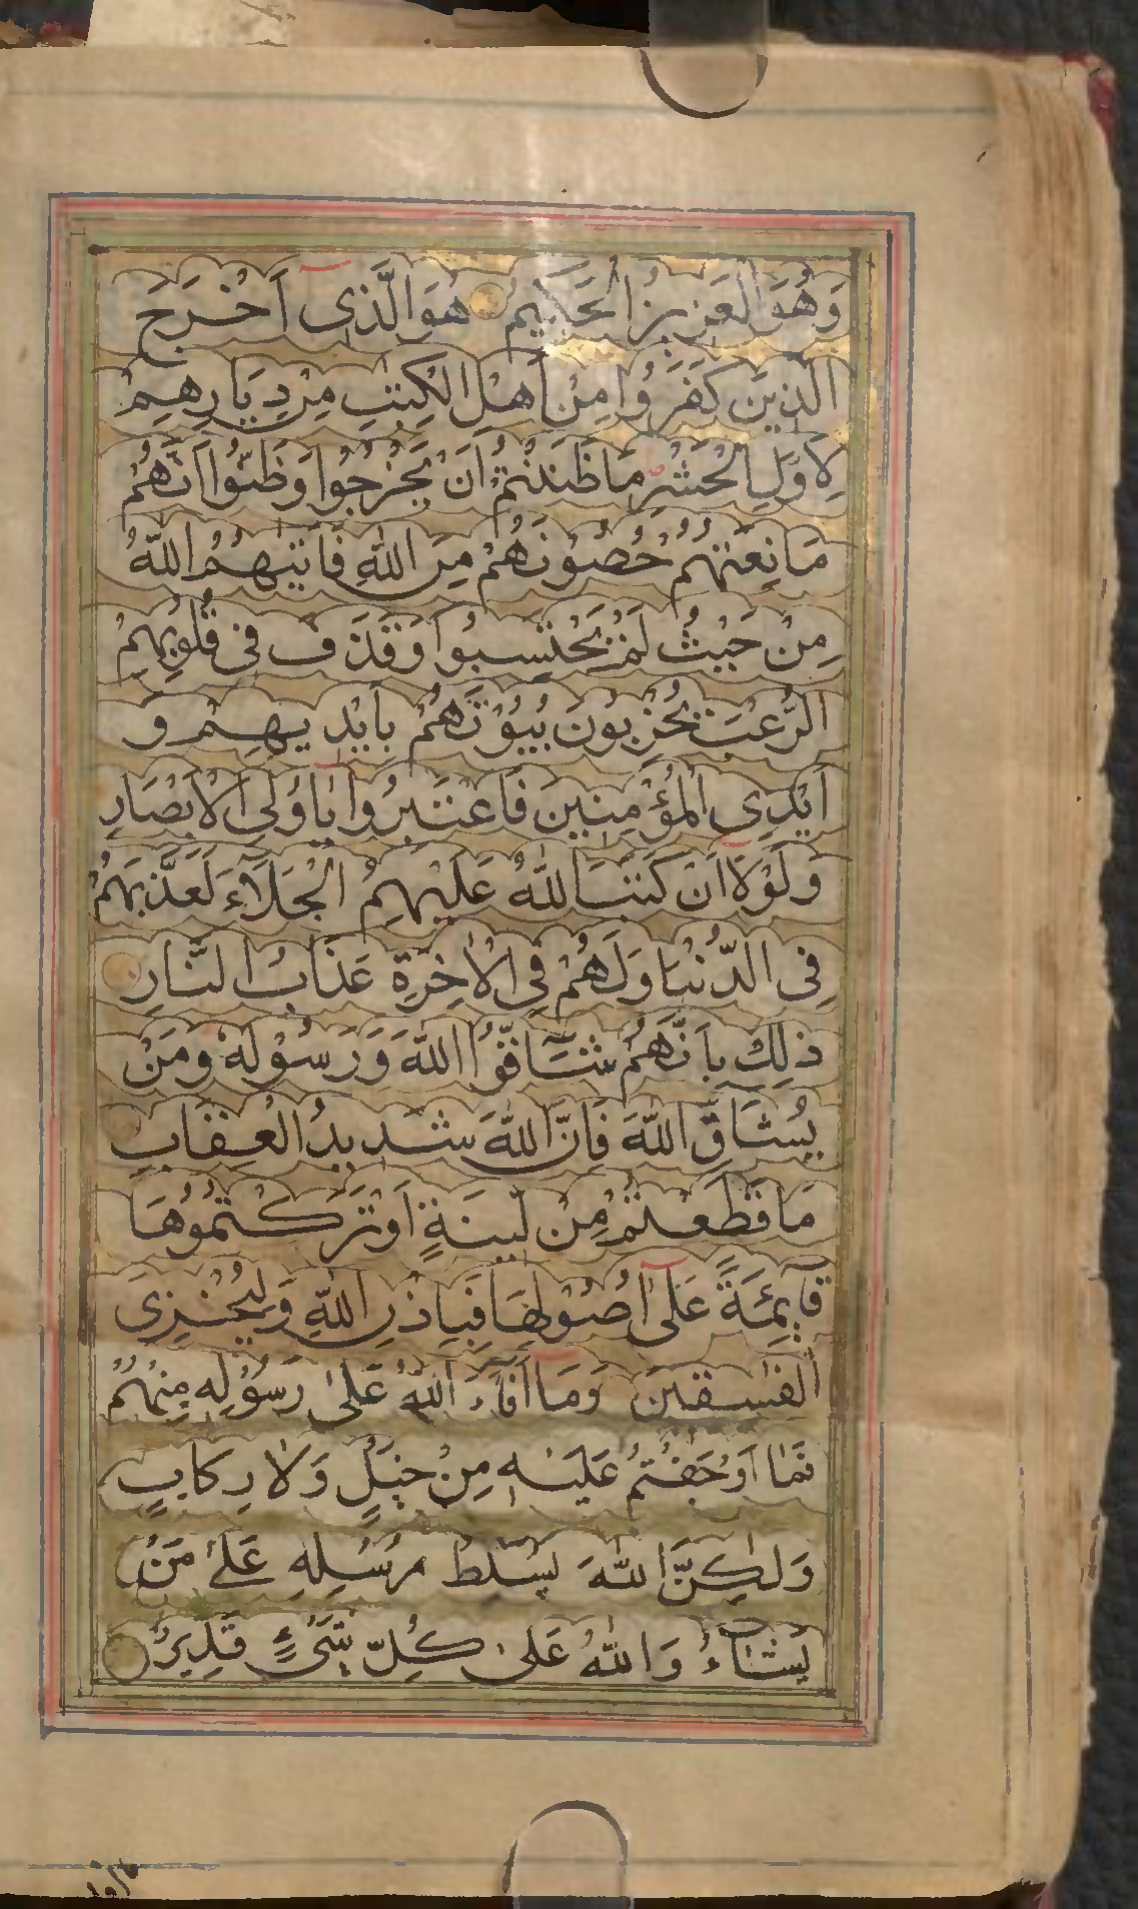 وَهُوَ الْعَزِيزُ الْحَكِيمُ هُوَ الَّذِى أَخْرَجَ
الَّذِينَ كَفَرُوا مِنْ أَهْلِ الْكِتٰبِ مِنْ دِيَارِهِمْ
لِأَوَّلِ الْحَشْرِ مَا ظَنَنْتُمْ أَنْ يَخْرُجُوا وَظَنُّوا أَنَّهُمْ
مَانِعَتُهُمْ حُصُونُهُمْ مِنَ اللّٰهِ فَأَتٰيهُمُ اللّٰهُ
مِنْ حَيْثُ لَمْ يَحْتَسِبُوا وَقَذَفَ فِى قُلُوبِهِمُ
الرُّعْبَ يُخْرِبُونَ بُيُوتَهُمْ بِأَيْدِيهِمْ وَ
أَيْدِى الْمُؤْمِنِينَ فَاعْتَبِرُوا يَا أُولِى الْأَبْصَارِ
وَلَوْلَا أَنْ كَتَبَ اللّٰهُ عَلَيْهِمُ الْجَلَاءَ لَعَذَّبَهُمْ
فِى الدُّنْيَا وَلَهُمْ فِى الْاٰخِرَةِ عَذَابُ النَّارِ
ذٰلِكَ بِأَنَّهُمْ شَاقُّوا اللّٰهَ وَرَسُولَهُ وَمَنْ
يُشَاقِّ اللّٰهَ فَإِنَّ اللّٰهَ شَدِيدُ الْعِقَابِ
مَا قَطَعْتُمْ مِنْ لِينَةٍ أَوْ تَرَكْتُمُوهَا
قَائِمَةً عَلٰى أُصُولِهَا فَبِإِذْنِ اللّٰهِ وَلِيُخْزِىَ
الْفٰسِقِينَ وَمَا أَفَاءَ اللّٰهُ عَلٰى رَسُولِهِ مِنْهُمْ
فَمَا أَوْجَفْتُمْ عَلَيْهِ مِنْ خَيْلٍ وَلَا رِكَابٍ
وَلٰكِنَّ اللّٰهَ يُسَلِّطُ رُسُلَهُ عَلٰى مَنْ
يَشَاءُ وَاللّٰهُ عَلٰى كُلِّ شَىْءٍ قَدِيرٌ